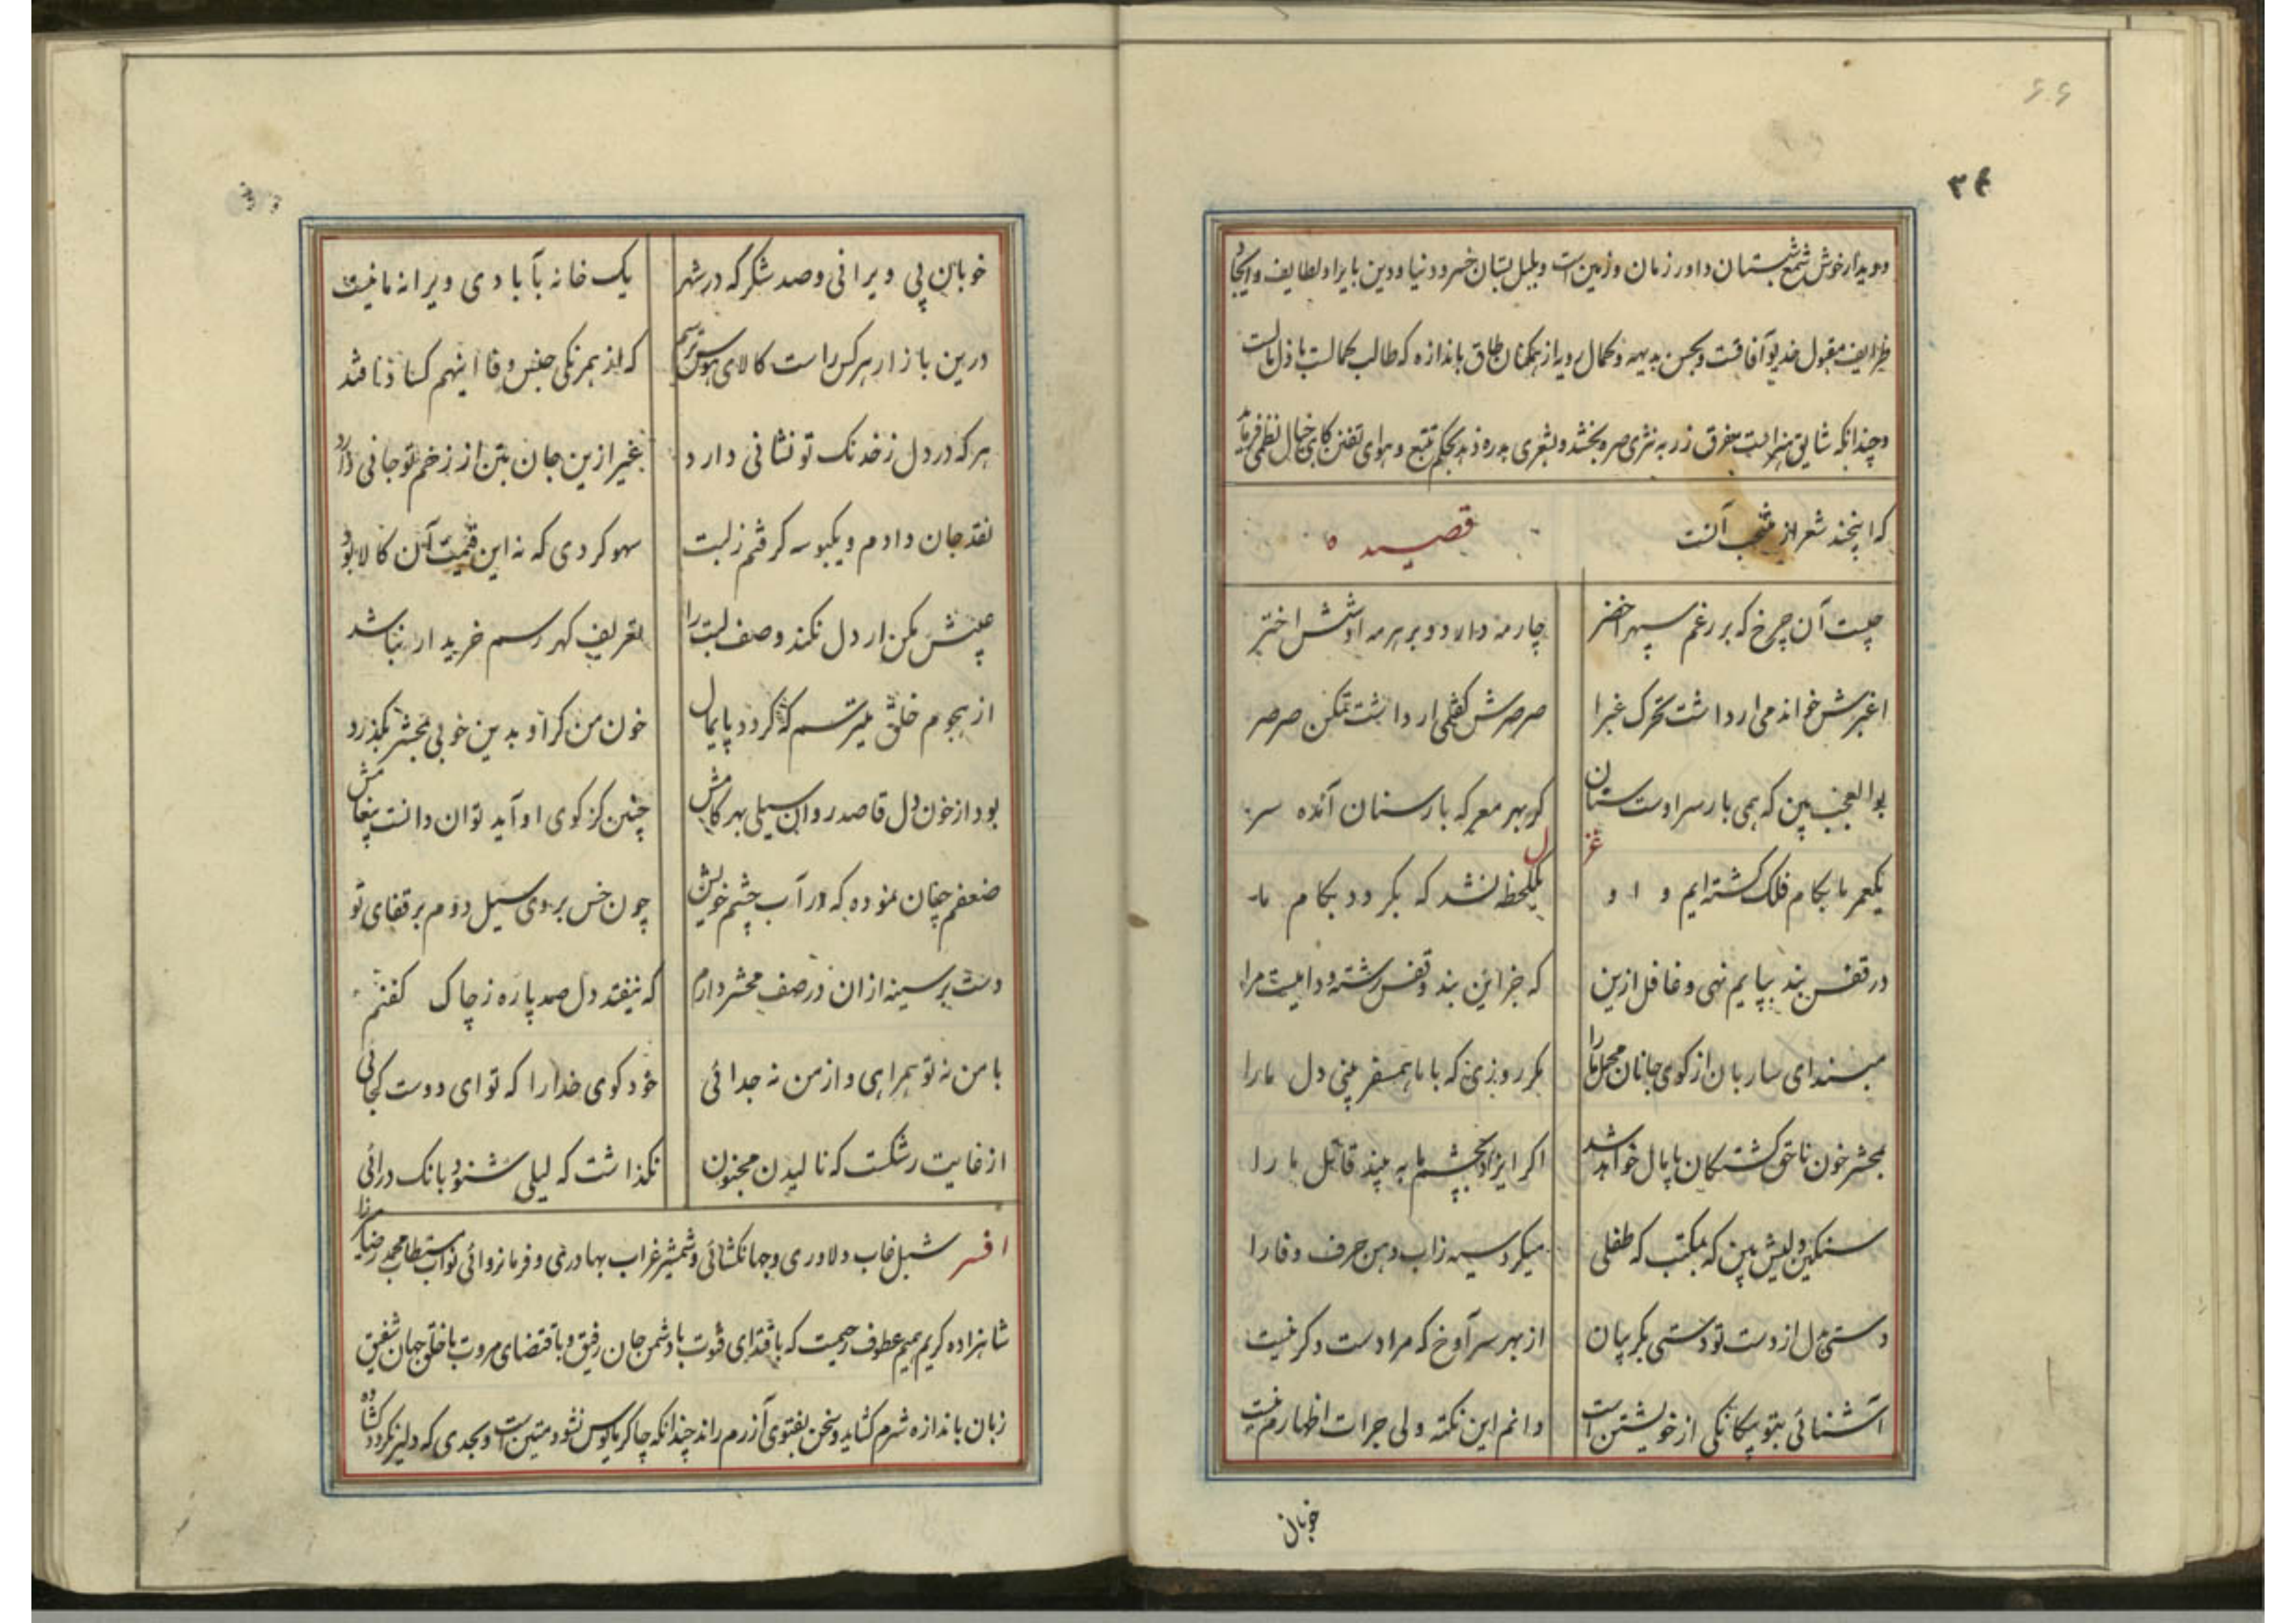 ۶۶
۳۴
و دیدار خوش شمع شبستان داور زمان و زمین است و بلبل بستان خسرو دنیا و دین با یراد لطایف و ایجاد
ظرایف مقبول خدیو آفاقست و بحسن بدیهه و کمال رویه از همکنان طاق باندازه که طالب کمالست باذل مالست
و چندانکه شایق هنر است مفرق زر به نثری صره بخشد و بشعری بدره دهد بحکم تتبع و هوای تفنن کاهی خیال نظمی فرماید
که اینچند شعر از منتخب آنست قصیده
چیست آن چرخ که بر رغم سپهر اخضر چار مه دارد و بر هر مه او شش اختر
اغبرش خواندمی ار داشت تحرک غبرا صرصرش گفتمی ار داشت تمکن صرصر
بوالعجب بین که همی بار سر اوست ستان کو بهر معرکه بار ستان آمده سر
غزل
یکعمر ما بکام فلک گشته ایم و او یکلحظه نشد که بکردد بکام ما
در قفس بند بپایم نهی و غافل ازین که جز این بند و قفس رشته و دامیست مرا
مبند ای ساربان از کوی جانان محمل ما را مکر روزی که با ما همسفر بینی دل ما را
بمحشر خون ناحق کشتکان پامال خواهد شد اکر ایزد بچشم ما به بیند قاتل ما را
سنکین دلیش بین که بمکتب که طفلی میکرد سیه زاب دهن حرف وفا را
دستی بدل از دست تو دستی بکریبان از بهر سر آوخ که مرا دست دکر نیست
آشنائی بتو بیکانکی از خویشتن است دانم این نکته ولی جرات اظهارم نیست
خوبان
خوبان پی ویرانی و صد شکر که در شهر یک خانه بآبادی ویرانه ما نیست
درین بازار هر کس راست کالای هوس ترسم که از همرنکی جنس وفا اینهم کساد افتد
هر که در دل ز خدنک تو نشانی دارد غیر ازین جان بتن از زخم تو جانی دارد
نقد جان دادم و یکبوسه کرفتم ز لبت سهو کردی که نه این قیمت آن کالا بود
عیبش مکن ار دل نکند وصف لبت را تعریف کهر رسم خریدار نباشد
از هجوم خلق میترسم که کردد پایمال خون من کر او بدین خوبی بمحشر بکذرد
بود از خون دل قاصد روان سیلی بهر کامش چنین کز کوی او آید توان دانست پیغامش
ضعفم چنان نموده که در آب چشم خویش چون خس بروی سیل دوم بر قفای تو
دست بر سینه از آن در صف محشر دارم که نیفتد دل صد پاره ز چاک کفنم
با من نه تو همراهی و از من نه جدائی خود کوی خدا را که تو ای دوست کجائی
از غایت رشکست که نالیدن مجنون نکذاشت که لیلی شنود بانک درائی
افسر شبل غاب دلاوری و جهانکشائی و شمشیر غراب بهادری و فرمانروائی نواب مستطاب محمد رضا میرزا
شاهزاده کریم همیم عطوف رحیمت که باقتدای فتوت با دشمن جان رفیق و باقتضای مروت با خلق جهان شفیق
زبان باندازه شرم کشاید و سخن بفتوی آزرم راند چندانکه چاکر مایوس نشود متین است و بحدی که دلیر نکردد کشاده